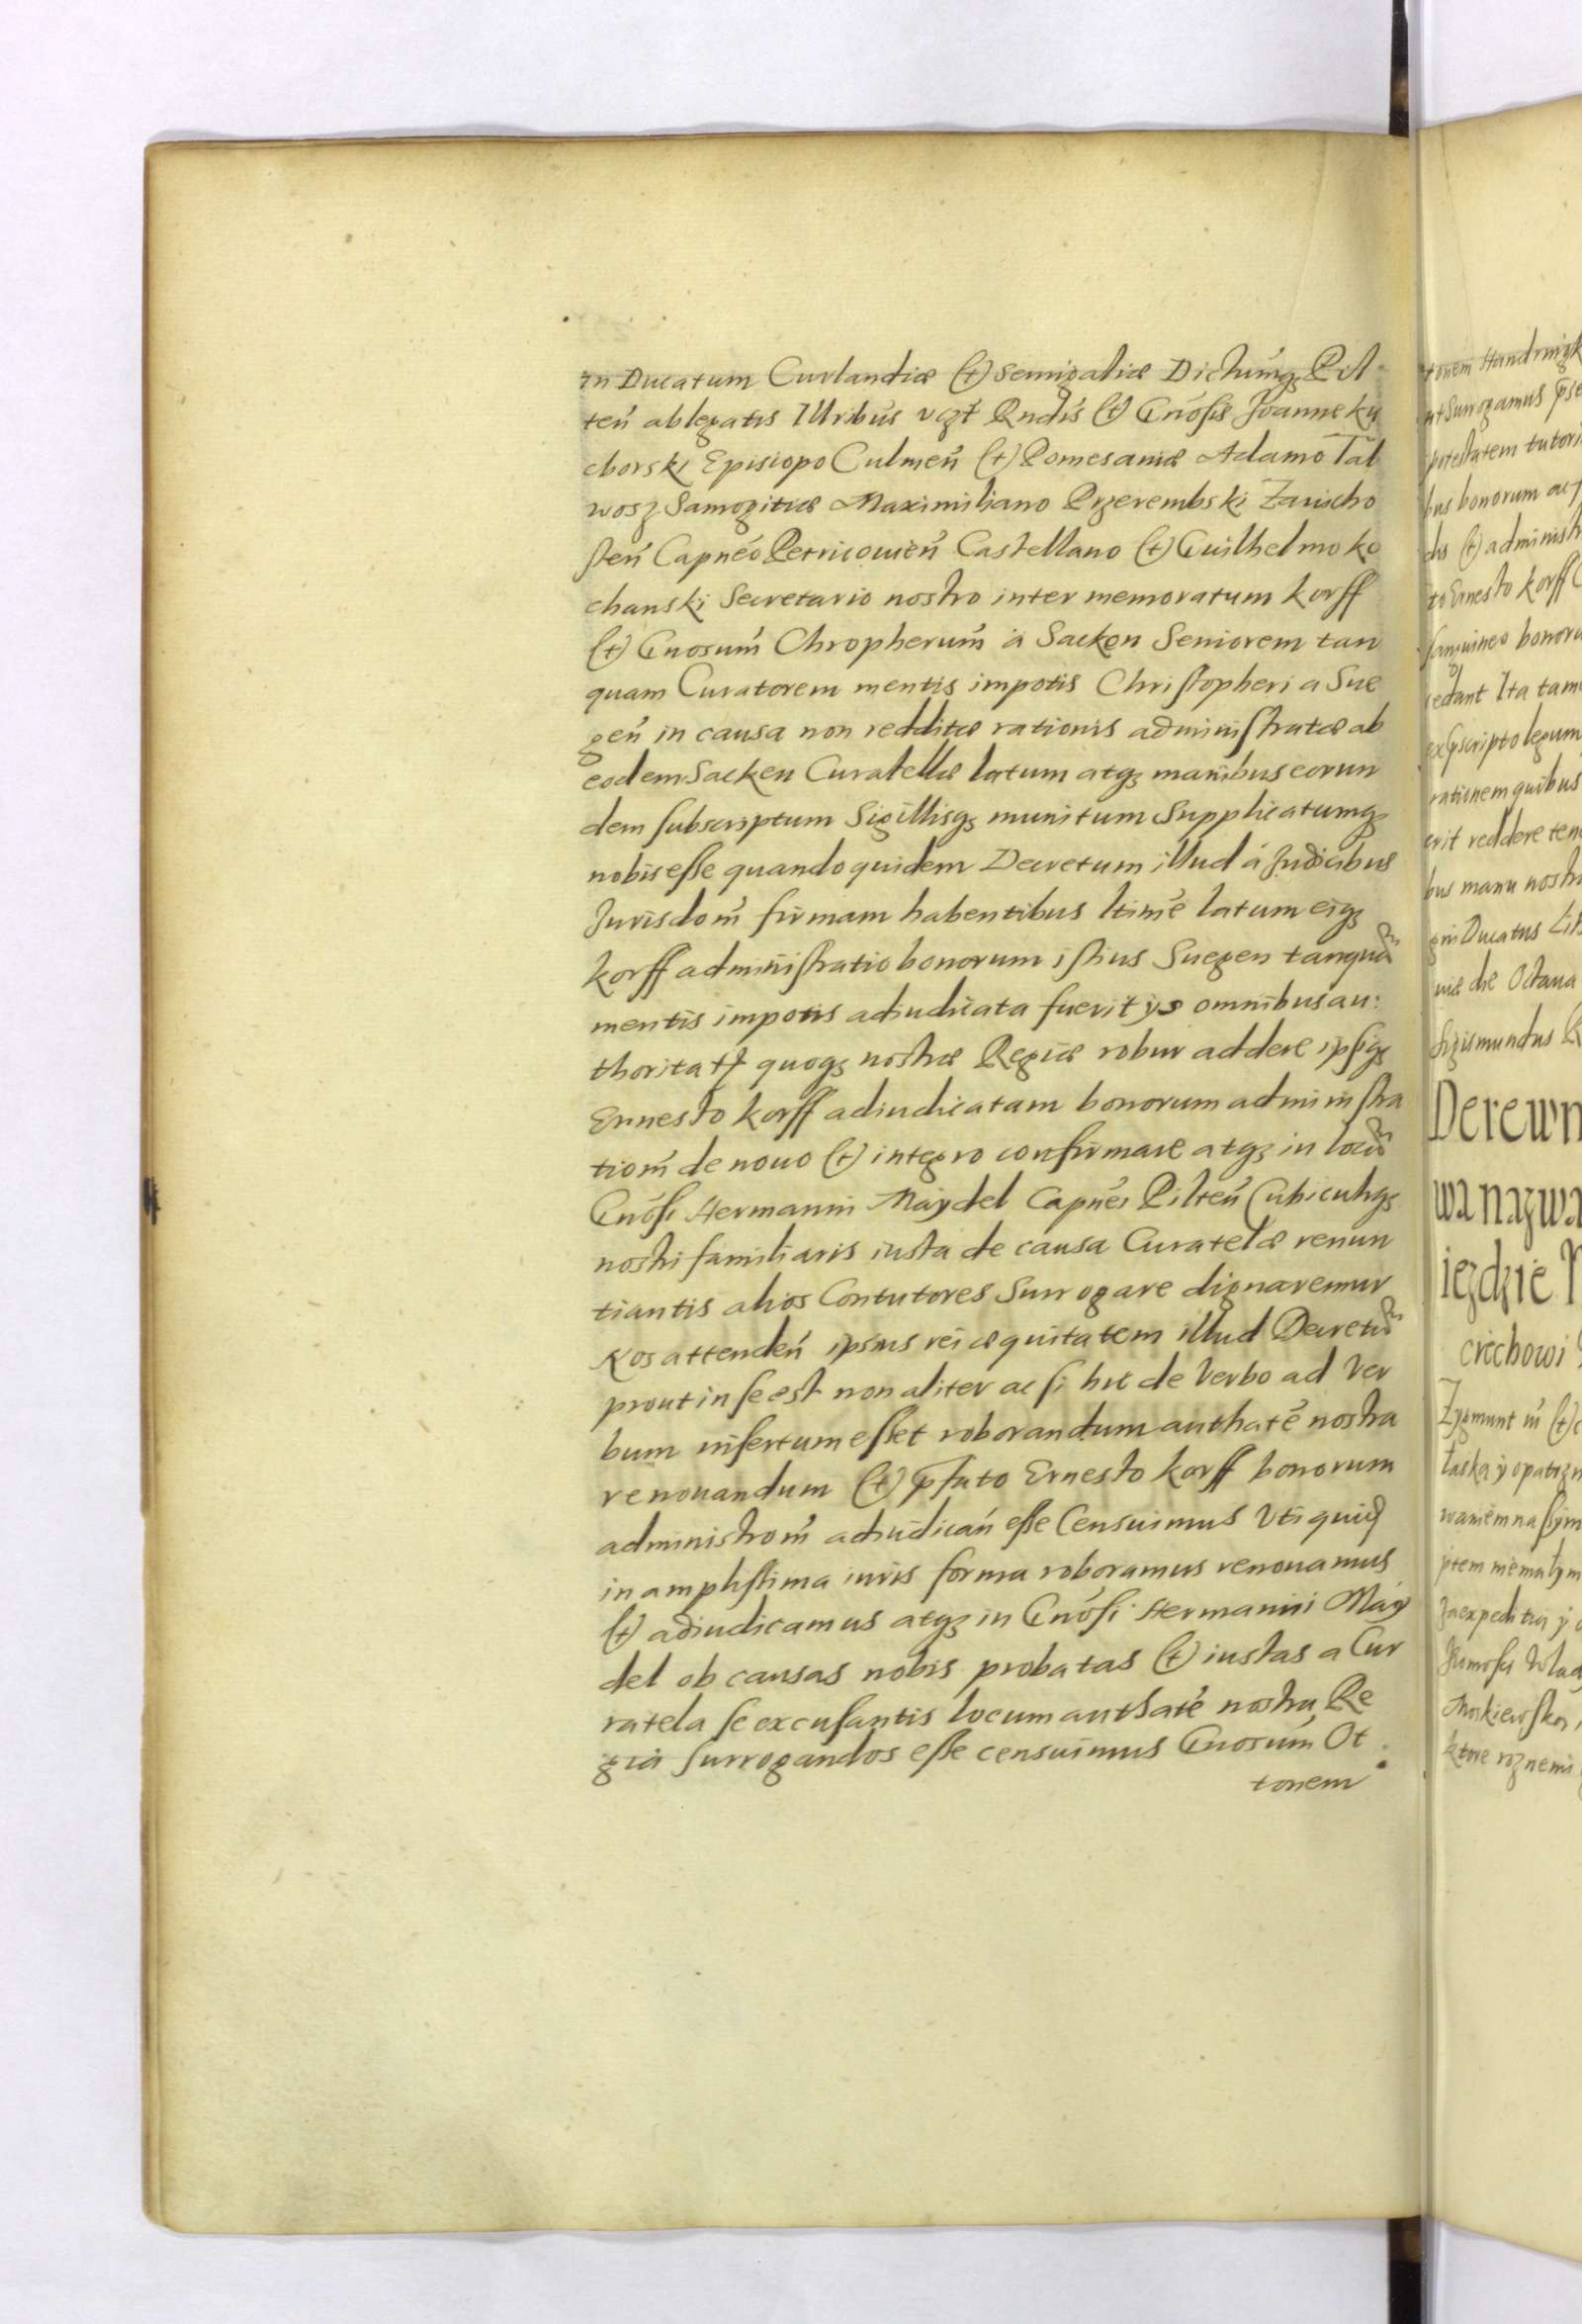 in Ducatum Curlandiæ (et) Semigaliæ Dictumq₃ Pil
ten̄ ablegatis Illribus vczt Rndis (et) Gnosis Joanne Ku
chorski Episcopo Culmen̄ (et) Pomesaniæ Adamo Tal
wosz Samogitiæ Maximiliano Przerembski Zawicho
sten̄ Capneo Petricowien̄ Castellano (et) Guilhelmo Ko
chanski Secretario nostro inter memoratum Korff
(et) Gnosum Chropherum à Sacken Seniorem tan
quam Curatorem mentis impotis Christopheri a Sue
gen̄ in causa non redditæ rationis administratæ ab
eodem Sacken Curatellæ latum atq₃ manibus eorun
dem subscriptum Sigillisq₃ munitum Supplicatumq₃
nobis esse quandoquidem Decretum illud á Judicibus
Jurisdom̄ firmam habentibus ltime latum eiq₃
Korff administratio bonorum istius Suegen tanquã
mentis impotis adiudicata fuerit ijs omnibus au:
thoritatẽ quoq₃ nostræ Regiæ robur addere ipsiq₃
Ernesto Korff adiudicatam bonorum administra
tiom̄ de nouo (et) integro confirmare atq₃ in locũ
Gnosi Hermanni Maydel Capnei Pilten̄ Cubiculiq₃
nostri familiaris iusta de causa Curatelæ renun
tiantis alios Contutores Surrogare dignaremur
Nos attenden̄ ipsius rei æquitatem illud Decretũ
prout in se est non aliter ac si hic de Verbo ad Ver
bum insertum esset roborandum authate nostra
renouandum (et) pfato Ernesto Korff bonorum
administrom̄ adiudican̄ esse Censuimus Vti quidẽ
in amplissima iuris forma roboramus renouamus
(et) adiudicamus atq₃ in Gnosi Hermanni May
del ob causas nobis probatas (et) iustas a Cur
ratela se excusantis locum authate nostra Re
gia surrogandos esse censuimus Gnosum Ot
tonem
tonem
ut Surrogamus
potestatem
bus bonorum
dis (et)
to Ernesto Korff
sanguineo
cedant Ita
legum
rationem quibus
erit reddere
bus manu
gni Ducatus
niæ die Octaua
Sigismundus
Derewn
wa nazwa
iezdzie
criechowi
Zygmunt